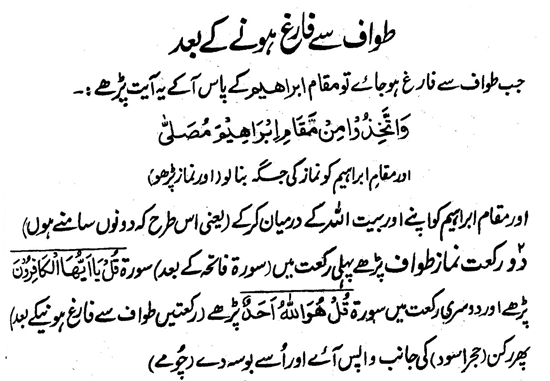 طواف سے فارغ ہونے کے بعد
جب طواف سے فارغ ہو جائے تو مقام ابراھیم کے پاس آکے یہ آیت پڑھے :۔
وَاتَّخِذُوْا مِنْ مَّقَامِ اِبْرَاهِيْمَ مُصَلًّى
اور مقام ابراہیم کو نماز کی جگہ بنا لو (اور نماز پڑھو)
اور مقام ابراہیم کو اپنے اور بیت اللہ کے درمیان کر کے (یعنی اس طرح کہ دونوں سامنے ہوں)
دو۲ رکعت نماز طواف پڑھے پہلی رکعت میں (سورۃ فاتحہ کے بعد) سورۃ قُلْ يَا اَيُّهَا الْكَافِرُوْنَ
پڑھے اور دوسری رکعت میں سورۃ قُلْ هُوَ اللّٰهُ اَحَدٌ پڑھے (رکعتیں طواف سے فارغ ہونیکے بعد)
پھر رکن (حجر اسود) کی جانب واپس آئے اور اُسے بوسہ دے (چومے)